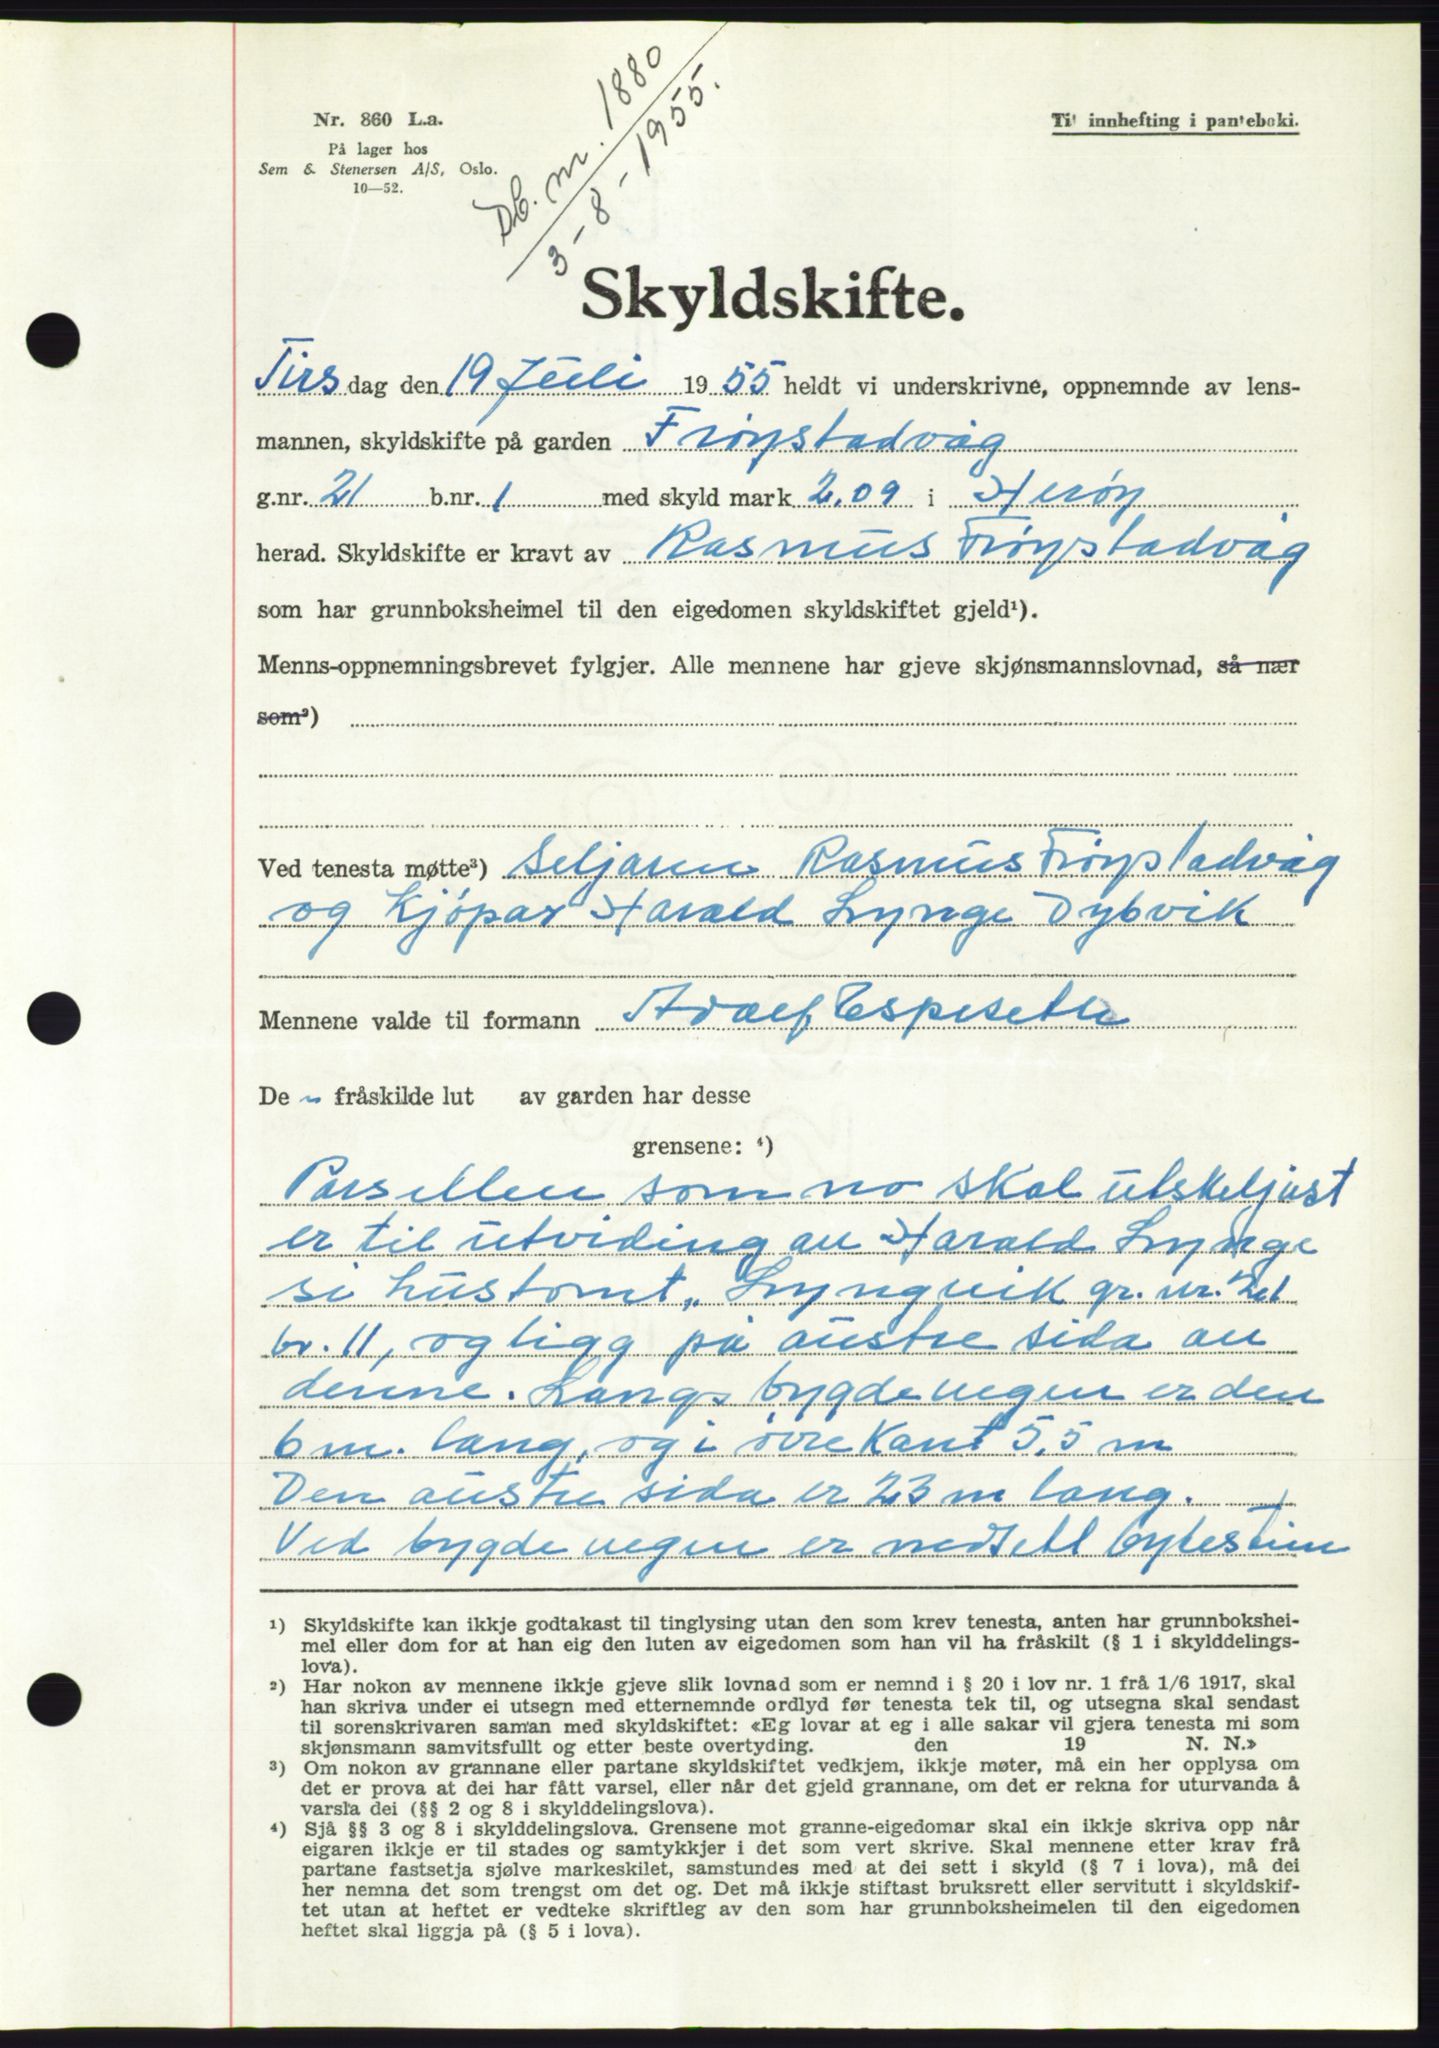 Nr. 860 L.a.
På lager hos
Sem & Stenersen A/S, Oslo.
10—52.
Db. nr. 1880
3-8-1955.
Til innhefting i panteboki.
Skyldskifte.
Tirsdag den 19 Juli 1955 heldt vi underskrivne, oppnemnde av lens-
mannen, skyldskifte på garden Frøystadvåg
g.nr. 21 b.nr. 1 med skyld mark 2,09 i Herøy
herad. Skyldskifte er kravt av Rasmus Frøystadvåg
som har grunnboksheimel til den eigedomen skyldskiftet gjeld¹).
Menns-oppnemningsbrevet fylgjer. Alle mennene har gjeve skjønsmannslovnad, så nær
som²)
Ved tenesta møtte³) Seljaren Rasmus Frøystadvåg
og Kjøpar Harald Lynge Dybvik
Mennene valde til formann Adolf Espeseth
De n fråskilde lut av garden har desse
grensene: ⁴)
Parsellen som no skal utskiljast
er til utviding av Harald Lynge
si hustomt „Lyngvik gr. nr. 21
br. 11, og ligg på austre sida av
denne. Langs bygdevegen er den
6 m. lang, og i øvre Kant 5,5 m
Den austre sida er 23 m lang.
Ved bygdevegen er nedsett bytestein
¹) Skyldskifte kan ikkje godtakast til tinglysing utan den som krev tenesta, anten har grunnbokshei-
mel eller dom for at han eig den luten av eigedomen som han vil ha fråskilt (§ 1 i skylddelings-
lova).
²) Har nokon av mennene ikkje gjeve slik lovnad som er nemnd i § 20 i lov nr. 1 frå 1/6 1917, skal
han skriva under ei utsegn med etternemnde ordlyd før tenesta tek til, og utsegna skal sendast
til sorenskrivaren saman med skyldskiftet: «Eg lovar at eg i alle sakar vil gjera tenesta mi som
skjønsmann samvitsfullt og etter beste overtyding. den 19 N. N.»
³) Om nokon av grannane eller partane skyldskiftet vedkjem, ikkje møter, må ein her opplysa om
det er prova at dei har fått varsel, eller når det gjeld grannane, om det er rekna for uturvanda å
varsla dei (§§ 2 og 8 i skylddelingslova).
⁴) Sjå §§ 3 og 8 i skylddelingslova. Grensene mot granne-eigedomar skal ein ikkje skriva opp når
eigaren ikkje er til stades og samtykkjer i det som vert skrive. Skal mennene etter krav frå
partane fastsetja sjølve markeskilet, samstundes med at dei sett i skyld (§ 7 i lova), må dei
her nemna det som trengst om det og. Det må ikkje stiftast bruksrett eller servitutt i skyldskif-
tet utan at heftet er vedteke skriftleg av den som har grunnboksheimelen til den eigedomen
heftet skal liggja på (§ 5 i lova).